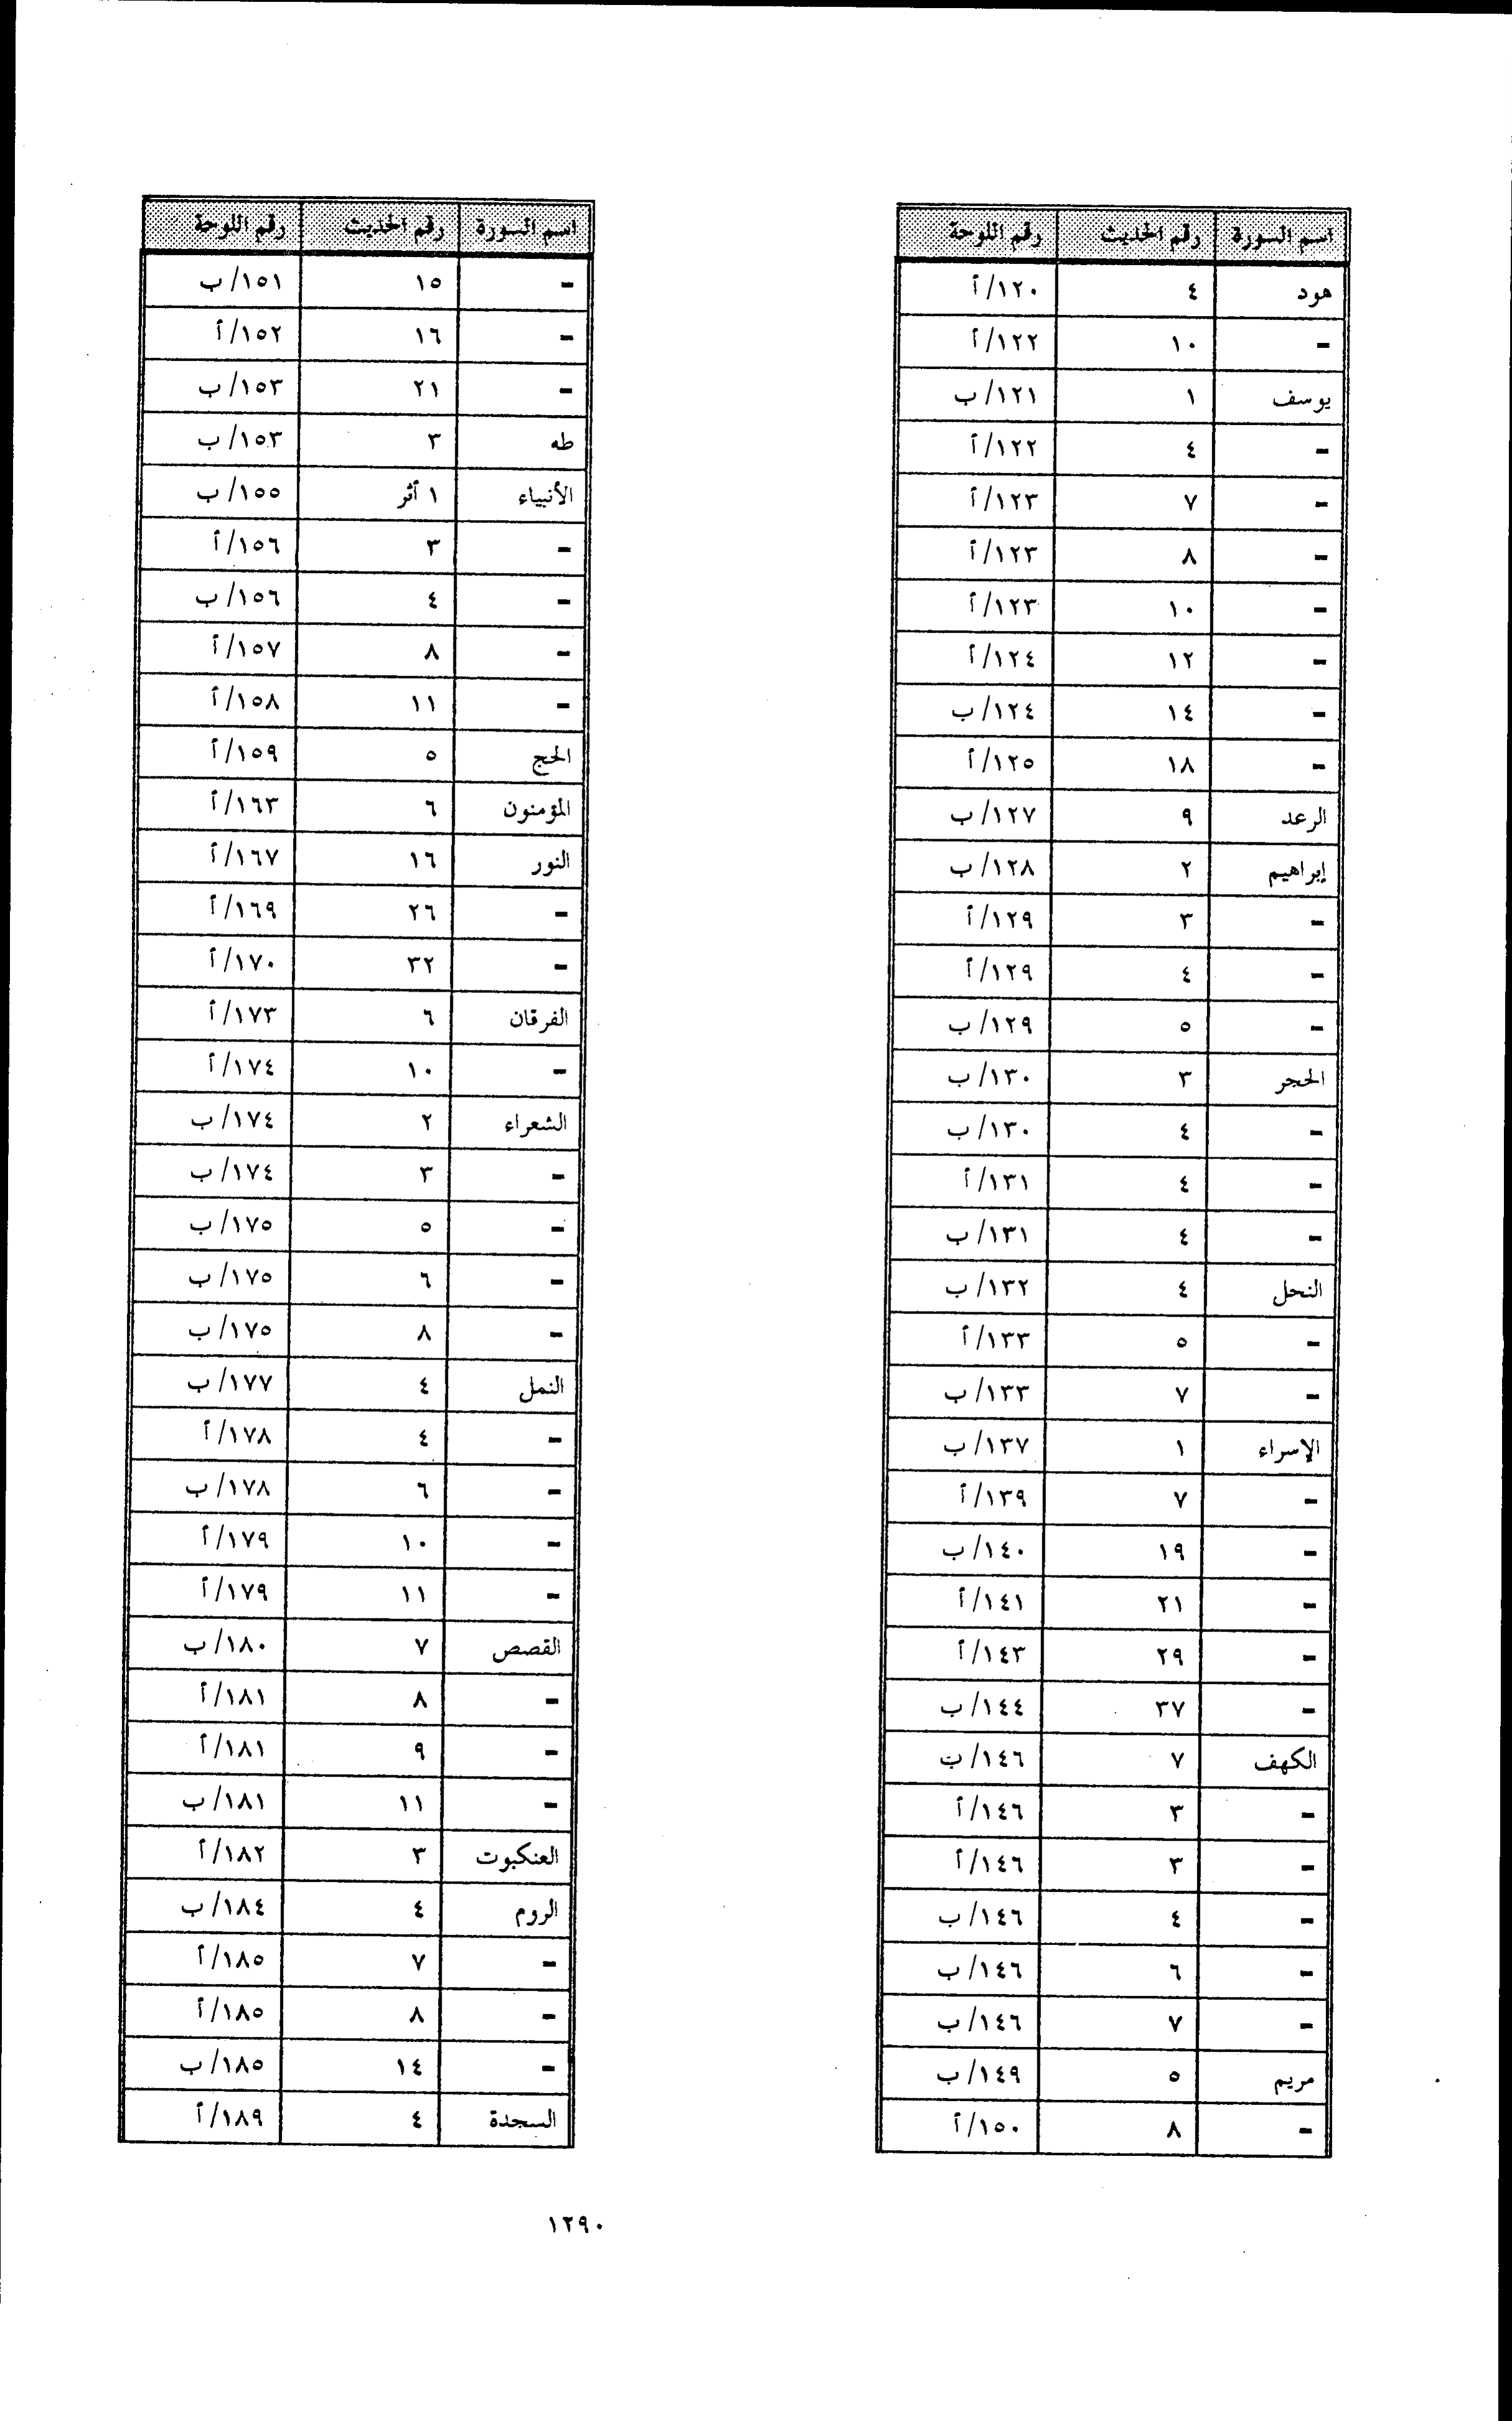 اسم السورة رقم الحديث رقم اللوحة
هود ٤ ١٢٠/أ
- ١٠ ١٢٢/أ
يوسف ١ ١٢١/ب
- ٤ ١٢٢/أ
- ٧ ١٢٣/أ
- ٨ ١٢٣/أ
- ١٠ ١٢٣/أ
- ١٢ ١٢٤/أ
- ١٤ ١٢٤/ب
- ١٨ ١٢٥/أ
الرعد ٩ ١٢٧/ب
إبراهيم ٢ ١٢٨/ب
- ٣ ١٢٩/أ
- ٤ ١٢٩/أ
- ٥ ١٢٩/ب
الحجر ٣ ١٣٠/ب
- ٤ ١٣٠/ب
- ٤ ١٣١/أ
- ٤ ١٣١/ب
النحل ٤ ١٣٢/ب
- ٥ ١٣٣/أ
- ٧ ١٣٣/ب
الإسراء ١ ١٣٧/ب
- ٧ ١٣٩/أ
- ١٩ ١٤٠/ب
- ٢١ ١٤١/أ
- ٢٩ ١٤٣/أ
- ٣٧ ١٤٤/ب
الكهف ٧ ١٤٦/ب
- ٣ ١٤٦/أ
- ٣ ١٤٦/أ
- ٤ ١٤٦/ب
- ٦ ١٤٦/ب
- ٧ ١٤٦/ب
مريم ٥ ١٤٩/ب
- ٨ ١٥٠/أ
اسم السورة رقم الحديث رقم اللوحة
- ١٥ ١٥١/ب
- ١٦ ١٥٢/أ
- ٢١ ١٥٣/ب
طه ٣ ١٥٣/ب
الأنبياء ١ أثر ١٥٥/ب
- ٣ ١٥٦/أ
- ٤ ١٥٦/ب
- ٨ ١٥٧/أ
- ١١ ١٥٨/أ
الحج ٥ ١٥٩/أ
المؤمنون ٦ ١٦٣/أ
النور ١٦ ١٦٧/أ
- ٢٦ ١٦٩/أ
- ٣٢ ١٧٠/أ
الفرقان ٦ ١٧٣/أ
- ١٠ ١٧٤/أ
الشعراء ٢ ١٧٤/ب
- ٣ ١٧٤/ب
- ٥ ١٧٥/ب
- ٦ ١٧٥/ب
- ٨ ١٧٥/ب
النمل ٤ ١٧٧/ب
- ٤ ١٧٨/أ
- ٦ ١٧٨/ب
- ١٠ ١٧٩/أ
- ١١ ١٧٩/أ
القصص ٧ ١٨٠/ب
- ٨ ١٨١/أ
- ٩ ١٨١/أ
- ١١ ١٨١/ب
العنكبوت ٣ ١٨٢/أ
الروم ٤ ١٨٤/ب
- ٧ ١٨٥/أ
- ٨ ١٨٥/أ
- ١٤ ١٨٥/ب
السجدة ٤ ١٨٩/أ
١٢٩٠